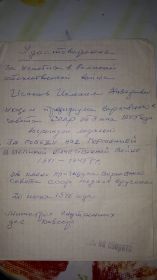 Удостоверение
За участие в Великой
отечественной войне
Исаков
Указом президиума верховного
совета СССР от 9 мая 1945 года
награжден медалью
За победу над Германией
в Великой Отечественной войне
1941 - 1945 гг
От имени президиума верховного
совета СССР медаль вручена
20 1946 года
Министр внутренних
дел